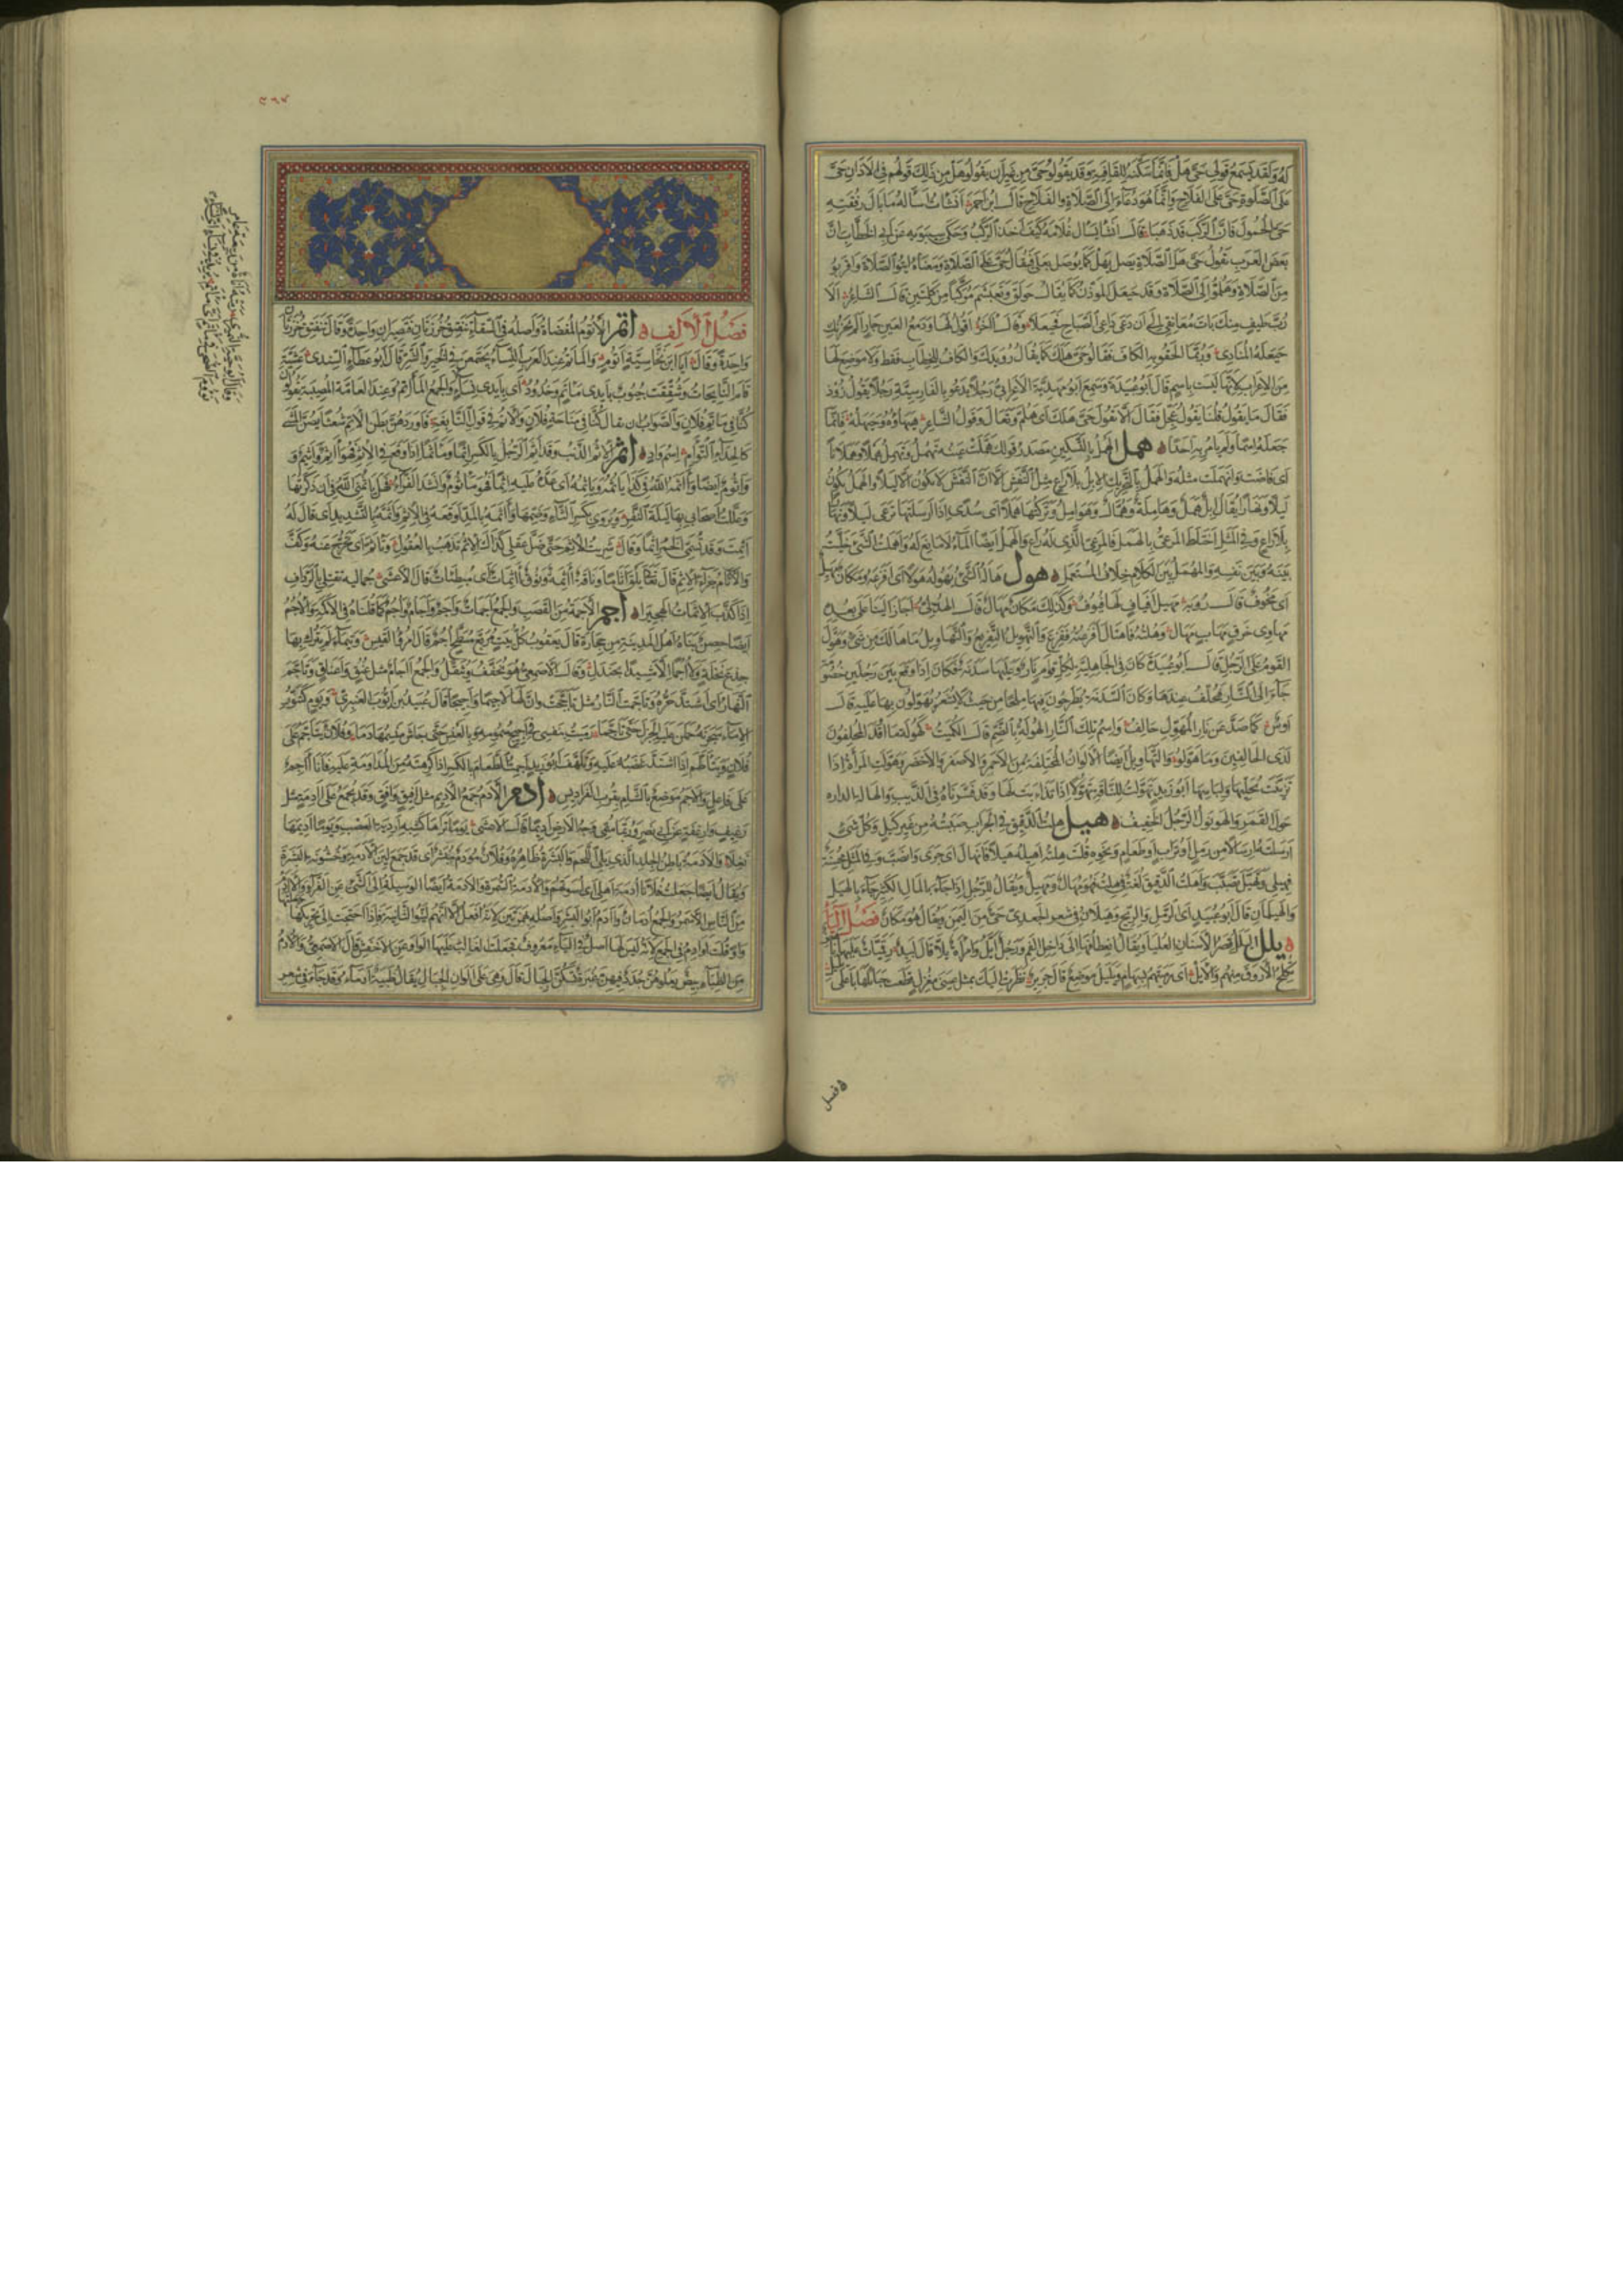 كهولقد يسمع قولي حي هل فانما سكنه للقافية وقد يقولون حي من غير ان يقولوا هل من ذلك قولهم في الاذان حي
على الصلوة حي على الفلاح وانما هو دعاء الى الصلاة والفلاح قال ابن احمر انشات اساله ما بال رفقته
حي الحمول فان الركب قد ذهبا قال انشا يسال غلامه كيف اخذ الركب وحكى سيبويه عن ابي الخطاب ان
بعض العرب يقول حي هل الصلاة يصل بهل كما يوصل بعلى فيقال حي على الصلاة ومعناه ايتوا الصلاة واقربوا
من الصلاة وهلموا الى الصلاة وقد حيعل الموذن كما يقال حولق وتعبشم مركبا من كلمتين قال الشاعر الا
رب طيف منك بات معانقي الى ان دعى داعي الصباح فيعلا وقال اخر اقول لها ودمع العين جار الم يحزنك
حيعلة المنادي وربما الحقوا به الكاف فقالوا حي هلك كما يقال رويدك والكاف للخطاب فقط ولا موضع لها
من الاعراب لانها ليست باسم قال ابو عبيدة وسمع ابو مهدية الاعرابي رجلا يدعو بالفارسية رجلا يقول زوذ
فقال ما يقول قلنا يقول عجل فقال الا يقول حي هلك اى هلم وتعال وقول الشاعر هيهاؤه وحيهله فانما
جعله اسما ولم يامر به احدا همل الهمل بالتسكين مصدر قولك هملت عينه تهمل وتهمل هملا وهملانا
اى فاضت وانهملت مثله والهمل بالتحريك الابل بلا راع مثل النفش الا ان النفش لا يكون الا ليلا والهمل يكون
ليلا ونهارا يقال ابل همل وهاملة وهمال وهوامل وتركتها هملا اى سدى اذا ارسلتها ترعى ليلا ونهارا
بلا راع وفي المثل اختلط المرعي بالهمل فالمرعى الذي له راع والهمل ايضا الماء لا مانع له واهملت الشى خليت
بينه وبين نفسه والمهمل من الكلام خلاف المستعمل هول هالنى الشى يهوله هولا اى افزعه ومكان مهيل
اى مخوف قال رؤبة مهيل افياف لها فيوف وكذلك مكان مهال قال الهذلي اجاز الينا على بعده
مهاوى خرق مهاب مهال وهلته فاهتال افزعته ففزع والتهويل التفزيع والتهاويل ما هالك من شى وهول
القوم على الرجل قال ابو عبيدة كان في الجاهلية لكل قوم نار وعليها سدنة فكان اذا وقع بين رجلين خصومة
جاءا الى النار فيحلف عندها وكان السدنة يطرحون فيها ملحا من حيث لا يشعر يهولون بها عليه قال
اوس كما صد عن نار المهول حالف واسم تلك النار الهولة بالضم قال الكميت كهولة ما اوقد المحلفون
لدى الحالفين وما هولوا والتهاويل ايضا الالوان المختلفة من الاحمر والاصفر والاخضر وهولت المراة اذا
تزينت بحليها ولباسها ابو زيد تهولت للناقة تهولا اذا تذاءبت لها وقد فسرناه في الذيب والهالة الدارة
حول القمر والهولول الرجل الخفيف هيل هلت الدقيق في الجراب صببته من غير كيل وكل شى
ارسلته ارسالا من رمل او تراب او طعام ونحوه قلت هلته اهيله هيلا فانهال اى جرى وانصب وفي المثل محسنة
فهيلى وتهيل تصبب واهلت الدقيق لغة في هلت فهو مهال ومهيل ويقال للرجل اذا جاء بالمال الكثير جاء بالهيل
والهيلمان قال ابو عبيد اى الرمل والريح وهيلان في شعر الجعدى حي من اليمن ويقال هو مكان فصل الياء
يلل اليلل قصر الاسنان العليا ويقال انعطافها الى داخل الفم ورجل ايل وامراة يلاء قال لبيد رقميات عليها ناهض
تكلح الاروق منهم والايل اى رميتهم بسهام ويليل موضع قال جرير نظرت اليك بمثل عيني مغزل قطعت حبالتها باعلى يليل
فصل
فصل الالف اتم الاتوم المفضاة واصله في السقاء تنفتق خرزتان فتصيران واحدة وقال تنفتق خرزتان
واحدة وقال ايا ابن نخاسية اتوم والماتم عند العرب النساء يجتمعن في الخير والشر قال ابو عطاء السندى عشية
قام النايحات وشققت جيوب بايدى ماتم وخدود اى بايدى نساء والجمع الماتم وعند العامة المصيبة يقولون
كنا في ماتم فلان والصواب ان يقال كنا في مناحة فلان والاتم في قول النابغة فاوردهن بطن الاتم شعثا يصن المشى
كالحدا التوام اسم واد اثم الاثم الذنب وقد اثم الرجل بالكسر اثما وماثما اذا وقع في الاثم فهو آثم واثيم و
واثوم ايضا واثمه الله في كذا ياثمه وياثمه اى عده عليه اثما فهو ماثوم وانشد الفراء فهل ياثمنى الله في ان ذكرتها
وعللت اصحابى بها ليلة النفر ويروى بكسر الثاء وضمها وآثمه بالمد اوقعه في الاثم واثمه بالتشديد اى قال له
اثمت وقد تسمى الخمر اثما وقال شربت الاثم حتى ضل عقلى كذاك الاثم تذهب بالعقول وتاثم اى تحرج عنه وكف
والاثام جزاء الاثم قال تعالى يلق اثاما وناقة آثمة ونوق آثمات اى مبطئات قال الاعشى جمالية تغتلى بالرداف
اذا كذب الاثمات الهجيرا اجم الاجمة من القصب والجمع اجمات واجم واجام وآجام كما قلناه في الاكمة والاجم
ايضا حصن بناه اهل المدينة من حجارة قال يعقوب كل بيت مربع مسطح اجم قال امرؤ القيس وتيماء لم يترك بها
جذع نخلة ولا اجما الا مشيدا بجندل وقال الاصمعى هو يخفف ويثقل والجمع آجام مثل عنق واعناق وتاجم
النهار اى اشتد حره وتاجمت النار مثل تاججت وان لها لاجيما واجيجا قال عبيد بن ايوب العنبرى ويوم كتنور
الاماء سجرنه حملن عليه الجزل حتى تاجما رميت بنفسى في اجيج سمومه وبالعنس حتى جاش منسمها دما وفلان يتاجم على
فلان ويتاطم اذا اشتد غضبه عليه وتلهف ابو زيد اجمت الطعام بالكسر اذا كرهته من المداومة عليه فانا آجم
على فاعل والاجم موضع بالشام بقرب الفراديس ادم الادم جمع الاديم مثل افيق وافق وقد يجمع على آدمة مثل
رغيف وارغفة عن ابي نصر وربما سمى وجه الارض اديما قال الاعشى يوما تراها كشبه اردية العصب ويوما اديمها
نغلا والادمة باطن الجلد الذى يلى اللحم والبشرة ظاهره وفلان مؤدم مبشر اى قد جمع لين الادمة وخشونة البشرة
ويقال ايضا جعلت فلانا ادمة اهلى اى اسوتهم والادمة السمرة والادمة ايضا الوسيلة الى الشى عن الفراء والآدم
من الناس الاسمر والجمع ادمان وآدم ابو البشر واصله بهمزتين لانه افعل الا انهم لينوا الثانية فاذا احتجت الى تحريكها جعلتها
واوا وقلت اوادم في الجمع لانه ليس لها اصل في الياء معروف فجعلت الغالب عليها الواو عن الاخفش قال الاصمعى والادم
من الظباء بيض يعلوهن جدد فيهن غبرة تسكن الجبال قال وهى على الوان الجبال يقال ظبية ادماء وقد جاء في شعر